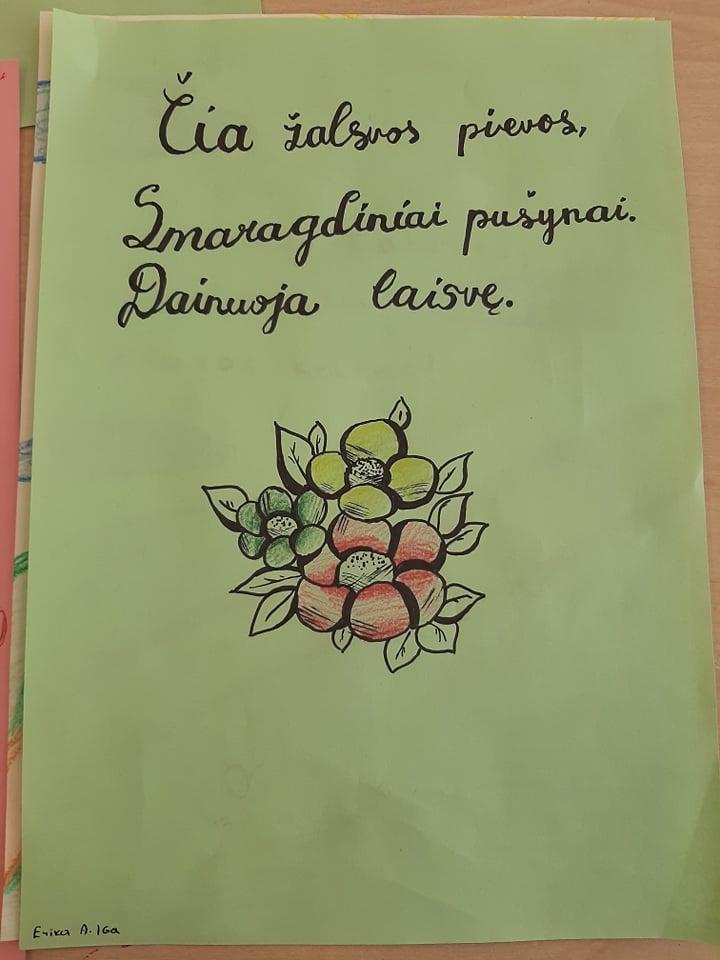 Čia žalsvos pievos,
Smaragdiniai pušynai.
Dainuoja laisvę.
Erika A. IGa